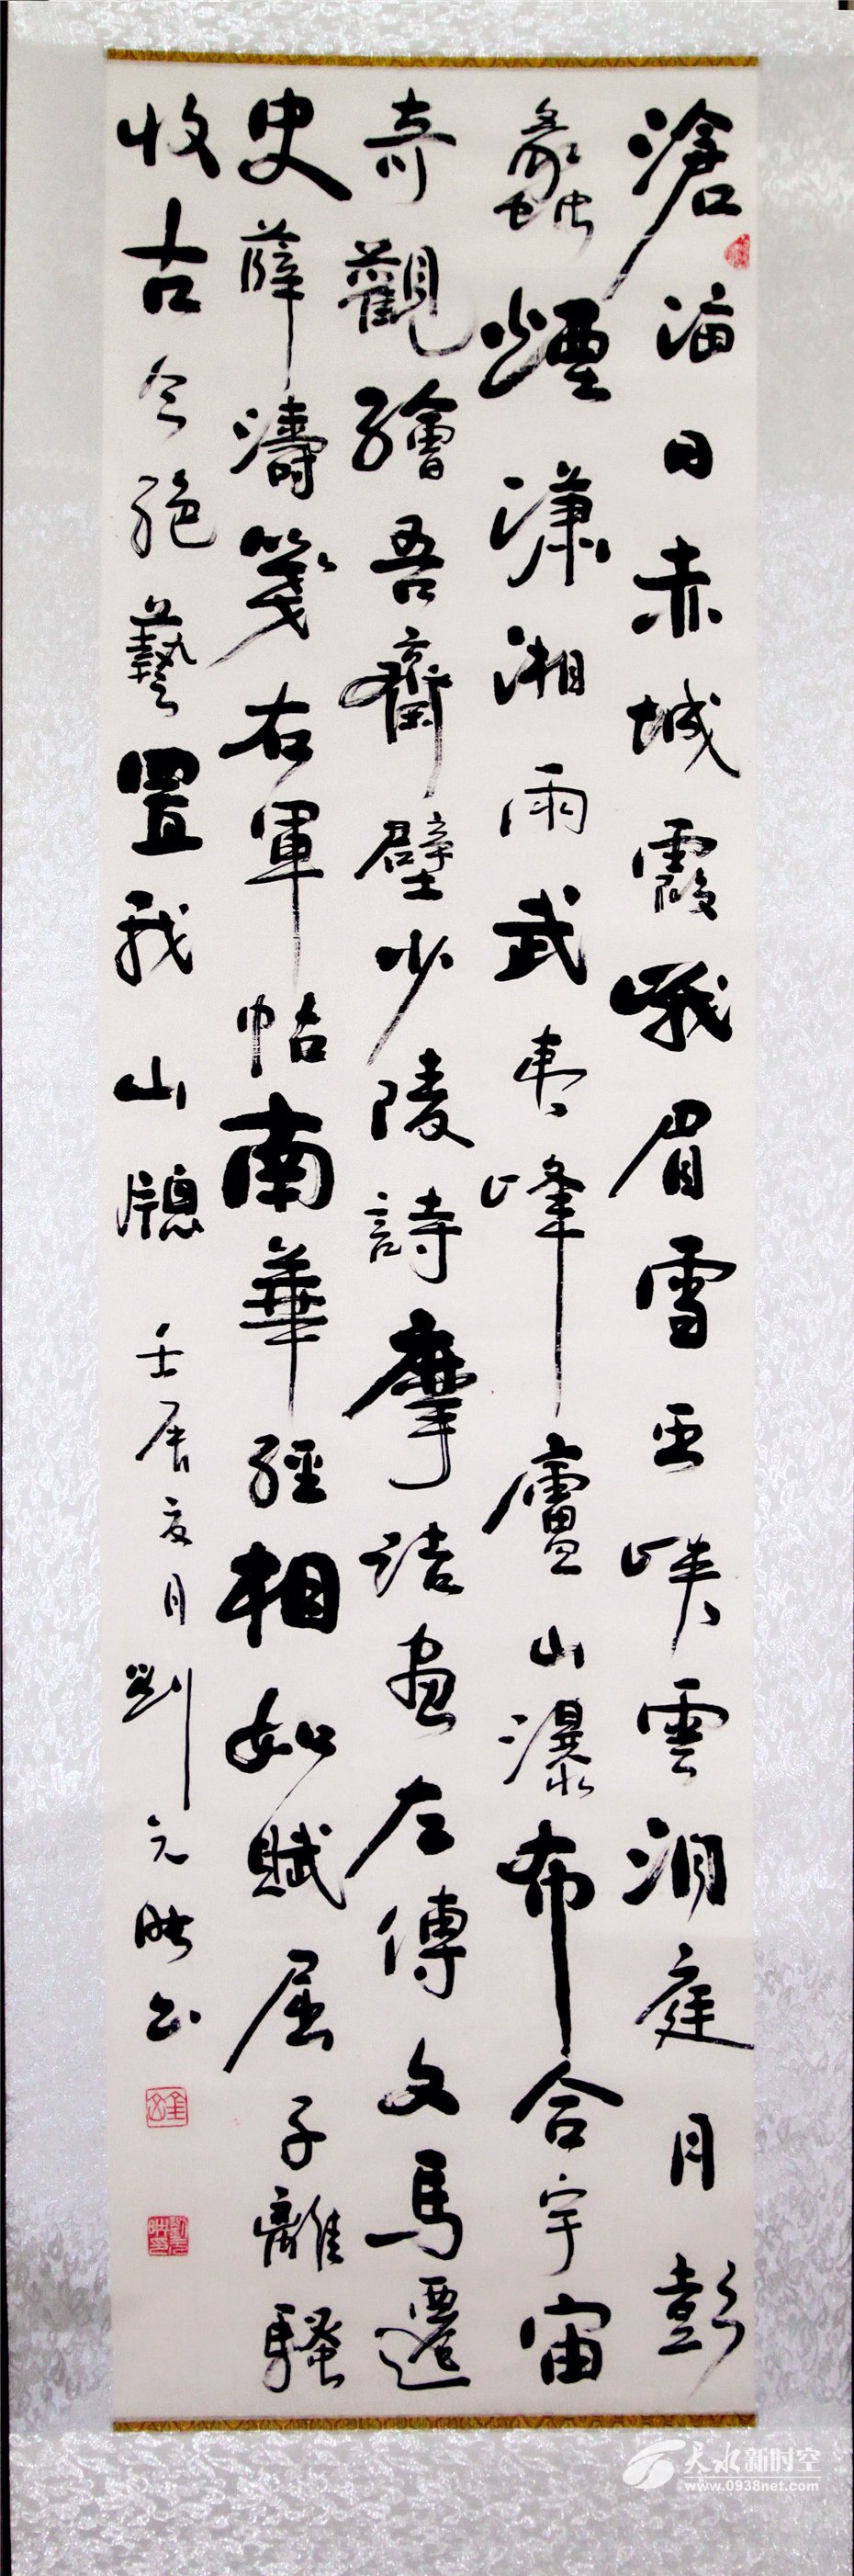 滄海日赤城霞峨眉雪巫峽雲洞庭月彭
蠡煙瀟湘雨武夷峰廬山瀑布合宇宙
奇觀繪吾齋壁少陵詩摩詰畫左傳文馬遷
史薛濤箋右軍帖南華經相如賦屈子離騷
收古今絕藝置我山牕
壬辰夏月劉元映书
天水新时空
www.0938net.com